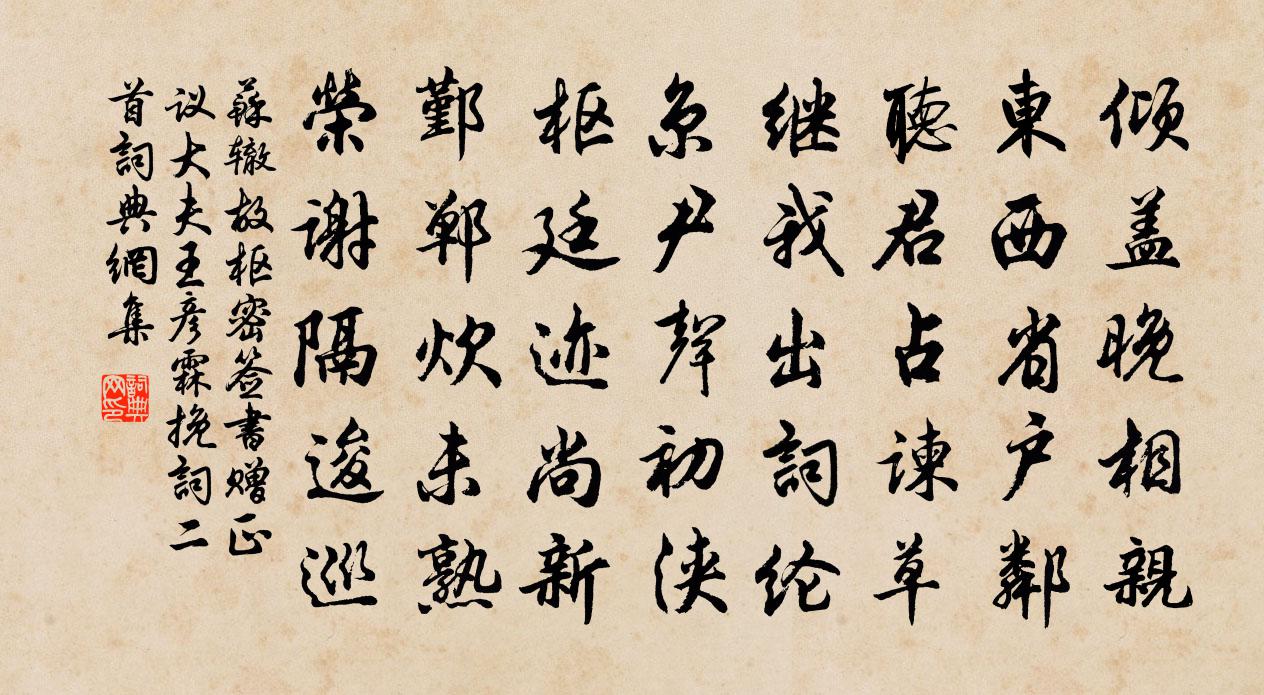 倾盖晚相親
東西省户鄰
聽君占谏草
继我出詞纶
京尹聲初浹
枢廷迹尚新
鄞郸炊未熟
榮谢隔逡巡
蘇辙故枢密签書赠正
议大夫王彦霖挽詞二
首詞典網集
詞典网印